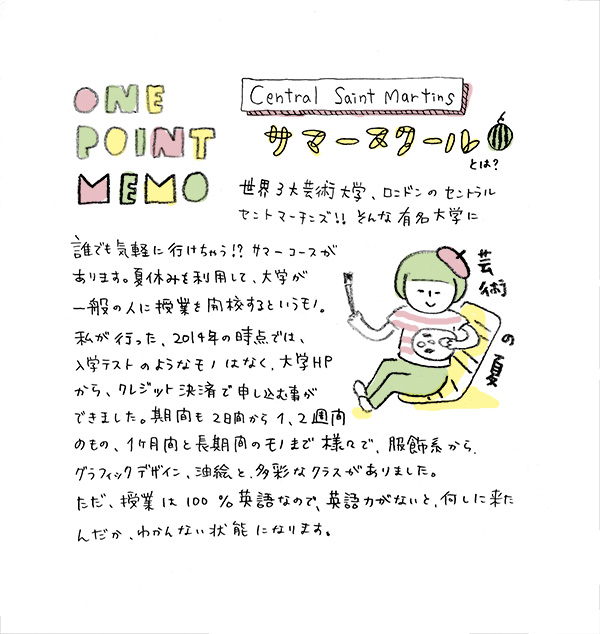 ONE
POINT
MEMO
Central Saint Martins
サマースクール
とは?
世界3大芸術大学、ロンドンのセントラル
セントマーチンズ!! そんな有名大学に
誰でも気軽に行けちゃう!? サマーコースが
あります。夏休みを利用して、大学が
一般の人に授業を開校するというモノ。
私が行った、2014年の時点では、
入学テストのようなモノはなく、大学HP
から、クレジット決済で申し込む事が
できました。期間も2日間から1、2週間
のもの、1ヶ月間と長期間のモノまで様々で、服飾系から、
グラフィックデザイン、油絵と、多彩なクラスがありました。
ただ、授業は100%英語なので、英語力がないと、何しに来た
んだか、わかんない状態になります。
芸術の夏